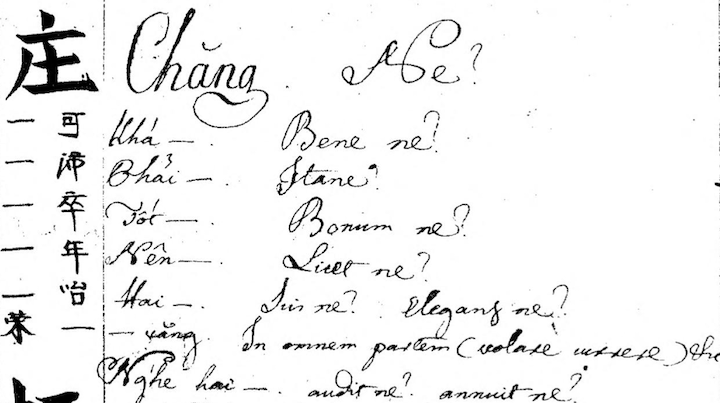 庄 Chăng. Ne?
— 可 Khá —. Bene ne?
— 沛 Phải —. Itane?
— 卒 Tốt —. Bonum ne?
— 年 Nên —. Licet ne?
— 咍 Hai —. Scis ne? Elegans ne?
— — xăng. In omnem partem (volare currere)
Nghe hai —. audit ne? annuit ne?